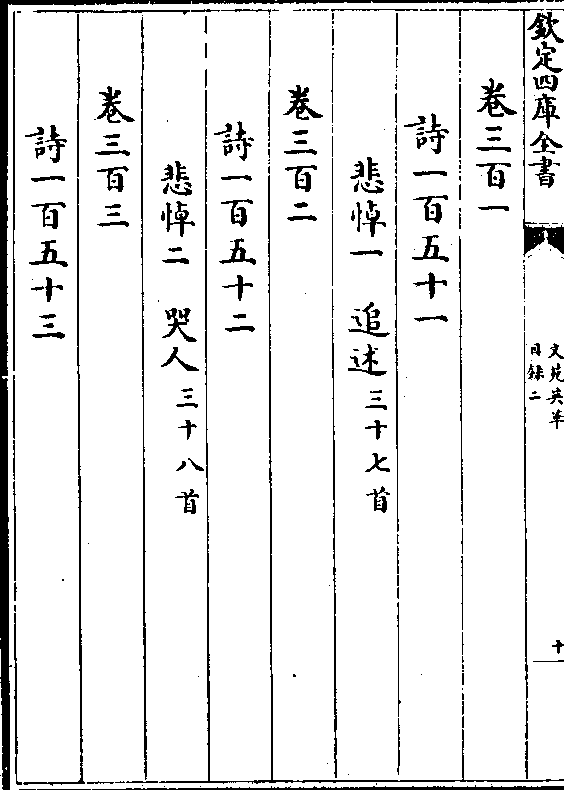 欽定四庫全書
文苑英華
目錄二
十
卷三百一
詩一百五十一
悲悼一 追述三十七首
卷三百二
詩一百五十二
悲悼二 哭人三十八首
卷三百三
詩一百五十三